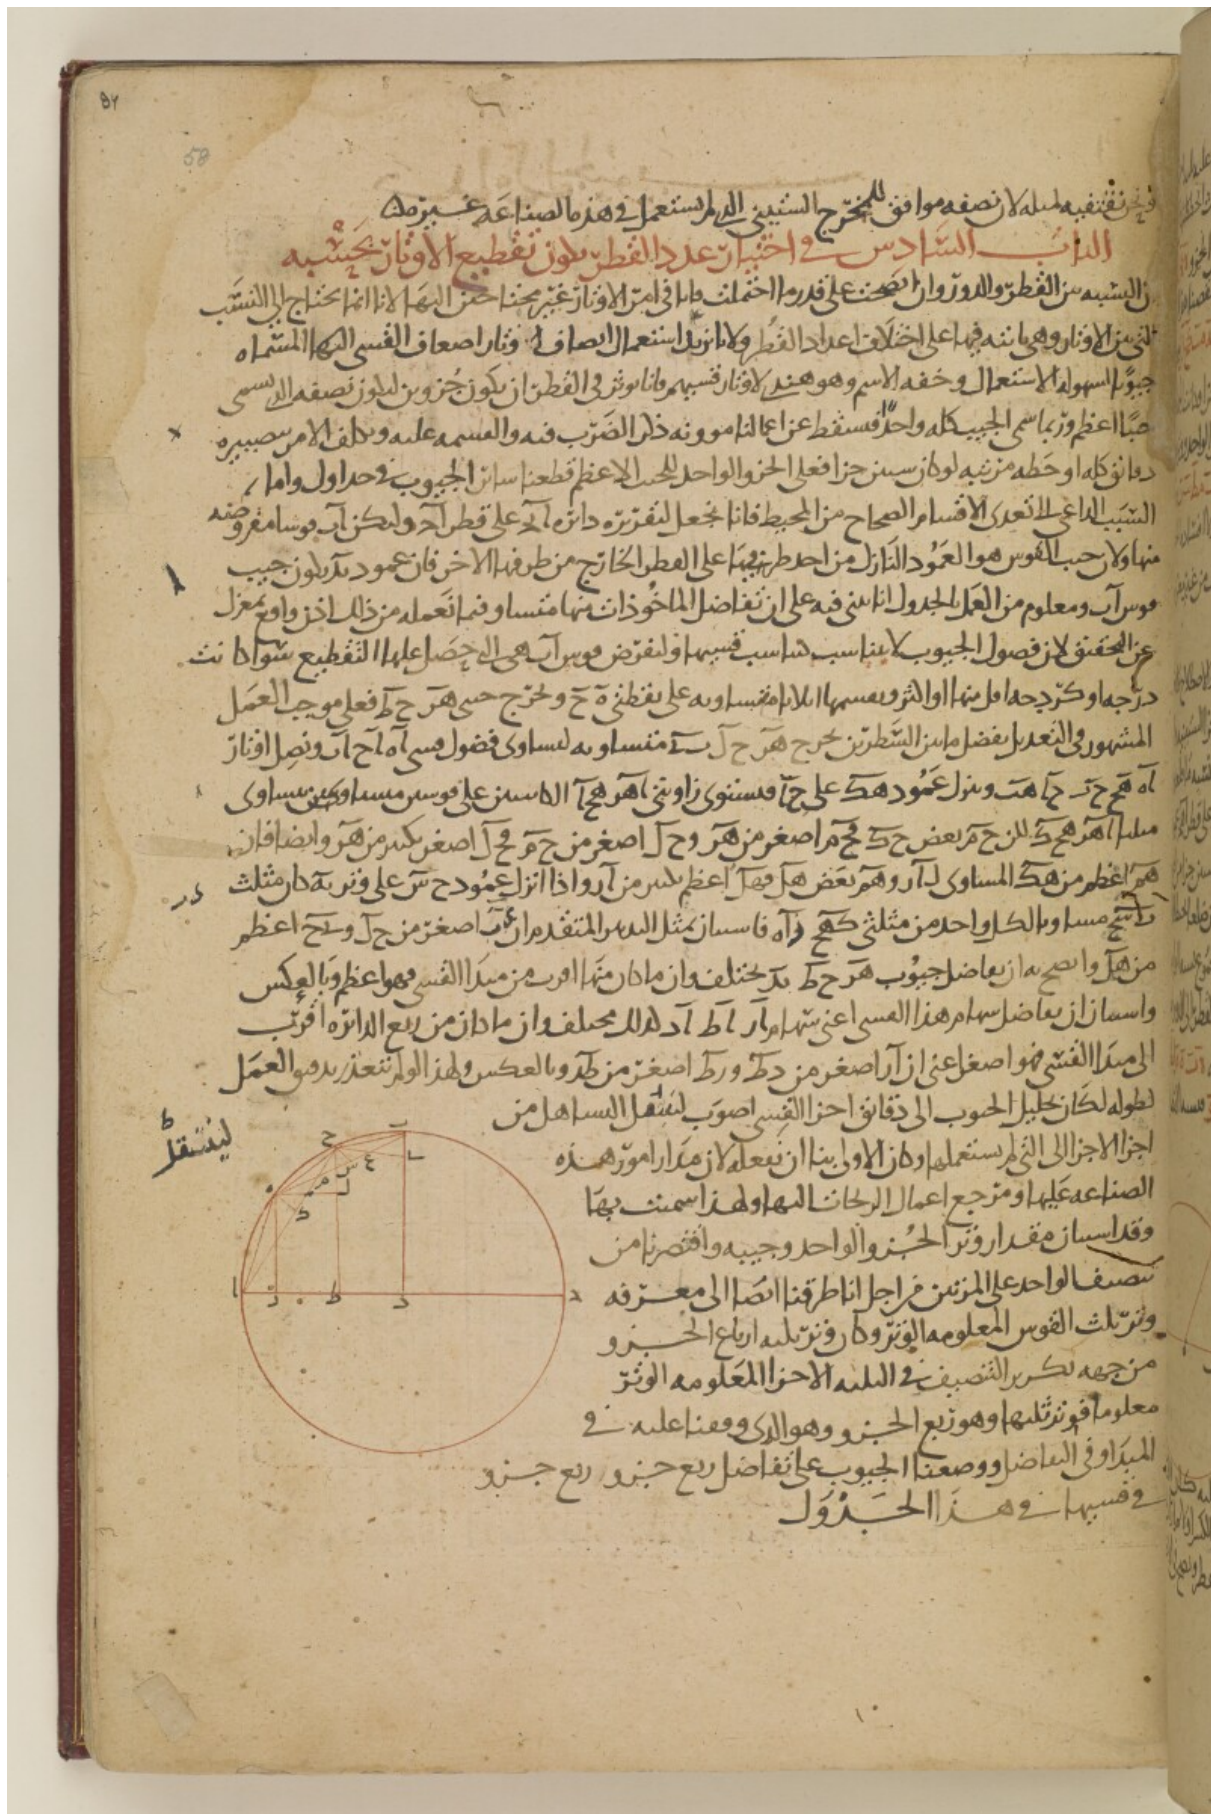 94
58
ونحن نقتفيه لميله لان نصفه موافق للمخرج الستيني الذي لم يستعمل في هذه الصناعة غيره
الباب السادس في اختيار عدد القطر يكون تقطيع الاوتار بحسبه
ان النسبة بين القطر والدور وان اتضحت على قدر ما احتملت فانا في امر الاوتار غير محتاجين اليها لانا انما نحتاج الى النسب
التي بين الاوتار وهي ثابتة فيها على اختلاف اعداد القطر ولانا نريد استعمال انصاف اوتار اضعاف القسي التي لها المسماة
جيوبا لسهولة الاستعمال وخفة الاسم وهو هندي لاوتار قسيهم فانا نوثر في القطر ان يكون جزوين ليكون نصفه الذي يسمى
جيبا اعظم وربما سمي الجيب كله واحدا فسقط عن اعمالنا مؤونة ذلك الضرب فيه والقسمة عليه وتكلف الامر بتصييره
دقائق كله او حطه مرتبة لو كان ستين جزا فعلى الجزو الواحد للجيب الاعظم قطعنا سائر الجيوب في جداول واما
السبب الداعي الى تعدي الاقسام الصحاح من المحيط فانا نجعل لتقريره دائرة ابج على قطر اج وليكن اب قوسا مفروضة
منها ولان جيب القوس هو العمود النازل من احد طرفيها على القطر الخارج من طرفها الاخر فان عمود بد يكون جيب
قوس اب ومعلوم من العمل بالجدول انا نبني فيه على ان تفاضل الماخوذات منها متساو فيما نعمله من ذلك اذن واقع بمعزل
عن التحقيق لان فصول الجيوب لا يتناسب تناسب قسيها ولنفرض قوس اب هي التي حصل عليها التقطيع سوا كانت
درجة او كردجة اقل منها او اكثر ونقسمها اثلاثا متساوية على نقطتي ه ح ونخرج جيبي هز حط فعلى موجب العمل
المشهور في التعديل بفضل ما بين السطرين يخرج هز حل بع متساوية لتساوي فضول قسي اه اح اب ونصل اوتار
اه هح حب حا هب وننزل عمود هك على حا فيستوي زاويتي اهز هحا الكائنتين على قوسين متساويتين يتساوى
مثلثا اهز هحك لكن حم بعض حك فحم اصغر من هز وحل اصغر من حم فحل اصغر بكثير من هز وايضا فان
هم اعظم من هك المساوي لاز وهم بعض هل فهل اعظم بكثير من از واذا انزل عمود حس على وتر به كان مثلث
بسح مساويا لكل واحد من مثلثي كهح زاه فاستبان بمثل التدبير المتقدم ان عب اصغر من حل وعح اعظم
من هل واتضح به ان تفاضل جيوب هز حط بد يختلف وان ما كان منها اقرب من مبدا القسي فهو اعظم وبالعكس
واستبان ان تفاضل سهام هذا القسي اعني سهام از اط اد كذلك مختلف وان ما كان من ربع الدائرة اقرب
الى مبدا القسي فهو اصغر اعني ان از اصغر من زط وزط اصغر من طد وبالعكس ولهذا لو لم نتعذر بدقيق العمل
لطوله لكان تحليل الجيوب الى دقائق اجزا القسي اصوب لينتقل التساهل من
اجزا الاجزا الى التي لم نستعملها وكان الاولى بنا ان نفعله لان مدار امور هذه
الصناعة عليها ومرجع اعمال الزيجات اليها ولهذا سميت بها
وقد استبان مقدار وتر الجزو الواحد وجيبه واقتصرنا من
تنصيف الواحد على المرتين من اجل انا طرقنا ايضا الى معرفة
وتر ثلث القوس المعلومة الوتر وكان وتر ثلثة ارباع الجزو
من جهة تكرير التنصيف في الثلثة الاجزا المعلومة الوتر
معلوما فوتر ثلثها وهو ربع الجزو وهو الذي وقفنا عليه في
المبدا وفي التفاضل ووضعنا الجيوب على تفاضل ربع جزو ربع جزو
في قسيها في هذا الجدول
لينتقل